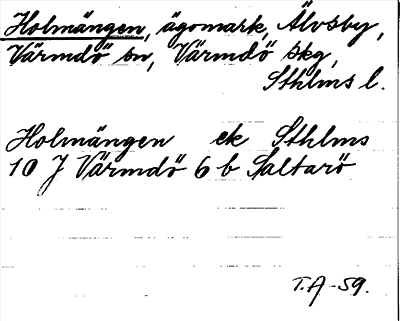 Holmängen, ägomark, Älvsby,
Värmdö sn, Värmdö skg,
Sthlms l.
Holmängen ek Sthlms
10 J Värmdö 6 b Saltarö
T.A-59.